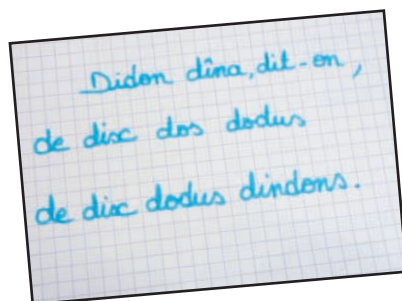 Didon dîna, dit-on,
de dix dos dodus
de dix dodus dindons.